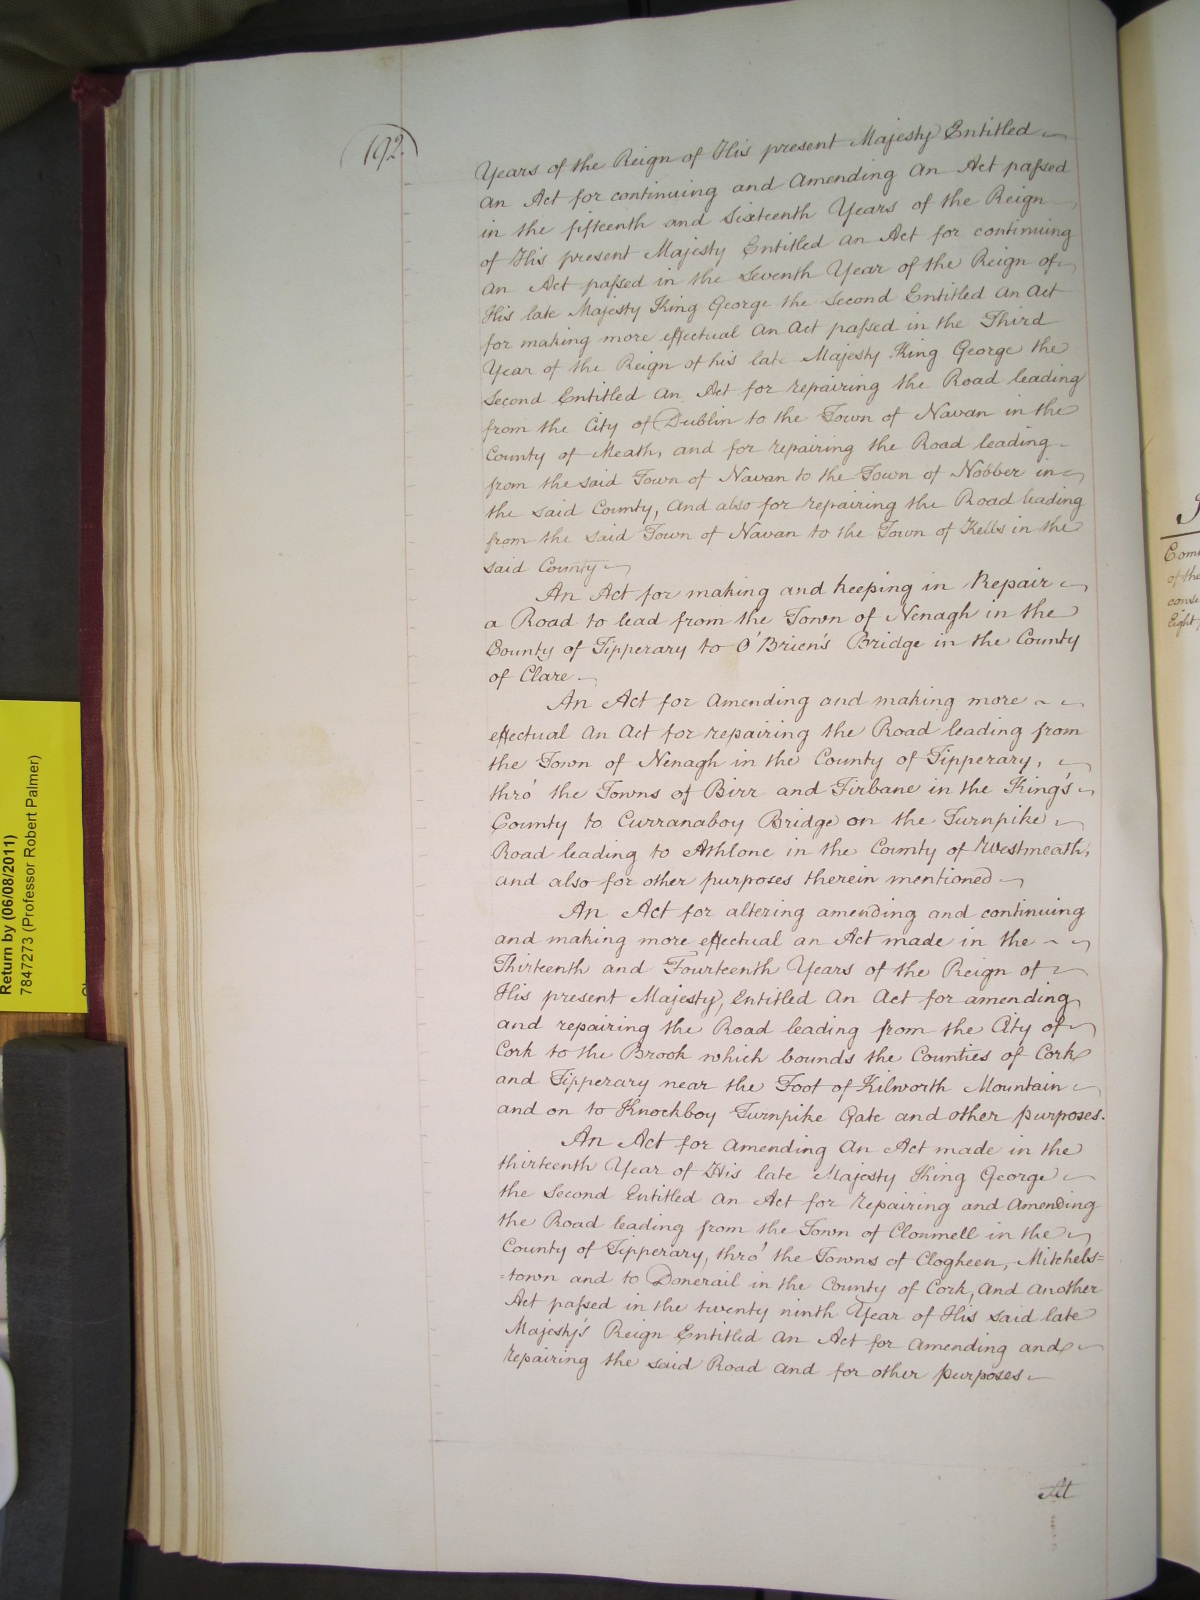 192.
Years of the Reign of His present Majesty Entitled
an Act for continuing and Amending An Act passed
in the fifteenth and Sixteenth Years of the Reign
of His present Majesty Entitled An Act for continuing
an Act passed in the Seventh Year of the Reign of
His late Majesty King George the Second Entitled An Act
for making more effectual An Act passed in the Third
Year of the Reign of his late Majesty King George the
Second Entitled An Act for repairing the Road leading
from the City of Dublin to the Town of Navan in the
County of Meath, and for repairing the Road leading
from the said Town of Navan to the Town of Nobber in
the said County, and also for repairing the Road leading
from the said Town of Navan to the Town of Kells in the
said County
An Act for making and keeping in Repair
a Road to lead from the Town of Nenagh in the
County of Tipperary to O'Brien's Bridge in the County
of Clare
An Act for Amending and making more
effectual An Act for repairing the Road leading from
the Town of Nenagh in the County of Tipperary,
thro' the Towns of Birr and Firbane in the King's
County to Curranaboy Bridge on the Turnpike
Road leading to Athlone in the County of Westmeath,
and also for other purposes therein mentioned
An Act for altering amending and continuing
and making more effectual an Act made in the
Thirteenth and Fourteenth Years of the Reign of
His present Majesty, Entitled An Act for amending
and repairing the Road leading from the City of
Cork to the Brook which bounds the Counties of Cork
and Tipperary near the Foot of Kilworth Mountain
and on to Knockboy Turnpike Gate and other purposes.
An Act for Amending An Act made in the
thirteenth Year of His late Majesty King George
the Second Entitled An Act for Repairing and Amending
the Road leading from the Town of Clonmell in the
County of Tipperary, thro' the Towns of Clogheen, Mitchels=
=town and to Donerail in the County of Cork, and another
Act passed in the twenty ninth Year of His said late
Majesty's Reign Entitled An Act for Amending and
repairing the said Road and for other purposes
At
Return by (06/08/2011)
7847273 (Professor Robert Palmer)
of the
Eight,